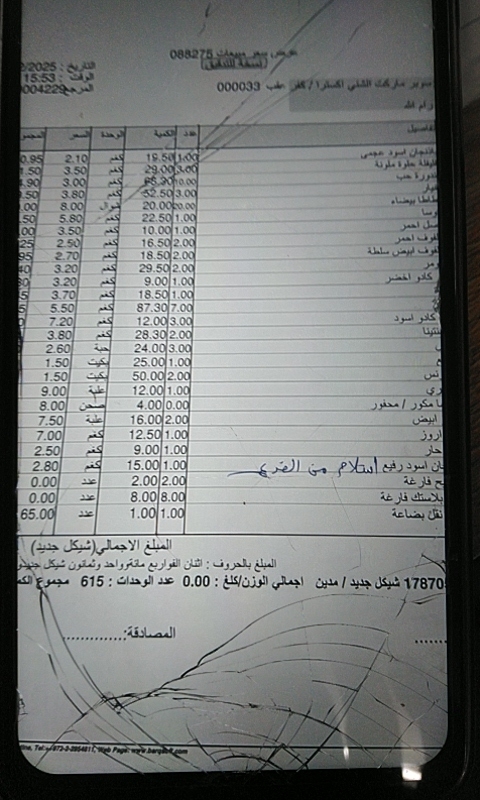 عرض سعر مبيعات 088275
(نسخة للتدقيق)
التاريخ : 2/2025
الوقت : 15:53
المرجع 0004229
سوبر ماركت الشلي اكسترا / كفر عقب 000033
رام الله
فاصيل عدد الكمية الوحدة السعر المجمو
باذنجان اسود عجمي 1.00 19.50 كغم 2.10 0.95
ليفلة حلوة ملونة 29.00 كغم 3.50 1.50
ندورة حب كغم 3.00 4.90
خيار 3.00 52.50 كغم 3.80 9.50
طاطا بيضاء 20.00 20.00 شوال 8.00
وسا 1.00 22.50 كغم 5.80 .50
صل احمر 1.00 10.00 كغم 3.50 .00
فوف احمر 2.00 16.50 كغم 2.50 25
فوف ابيض سلطة 2.00 18.50 كغم 2.70 95
ومر 2.00 29.50 كغم 3.20 40
كادو اخضر 1.00 9.00 كغم 3.20
1.00 18.50 كغم 3.70
7.00 87.30 كغم 5.50
كادو اسود 3.00 12.00 كغم 7.20
نتينا 2.00 28.30 كغم 3.80
3.00 24.00 حبة 2.60
1.00 25.00 بكيت 1.50
نس 2.00 50.00 بكيت 1.50
ري 1.00 12.00 علبة 9.00
ا مكور / محفور 0.00 4.00 صحن 8.00
ابيض 2.00 16.00 علبة 7.50
اروز 1.00 12.50 كغم 7.00
حار 1.00 9.00 كغم 2.50
ان اسود رفيع استلام من 1.00 15.00 كغم 2.80
ح فارغة 2.00 2.00 عدد 0.00
بلاستك فارغة 8.00 8.00 عدد 0.00
نقل بضاعة 1.00 1.00 عدد 65.00
المبلغ الاجمالي(شيكل جديد)
المبلغ بالحروف : اثنان الفواربع مائةوواحد وثمانون شيكل جديد
17870 شيكل جديد / مدين اجمالي الوزن/كلغ : 0.00 عدد الوحدات : 615 مجموع الكم
المصادقة:.............
Web Page: www.bargsoft.com